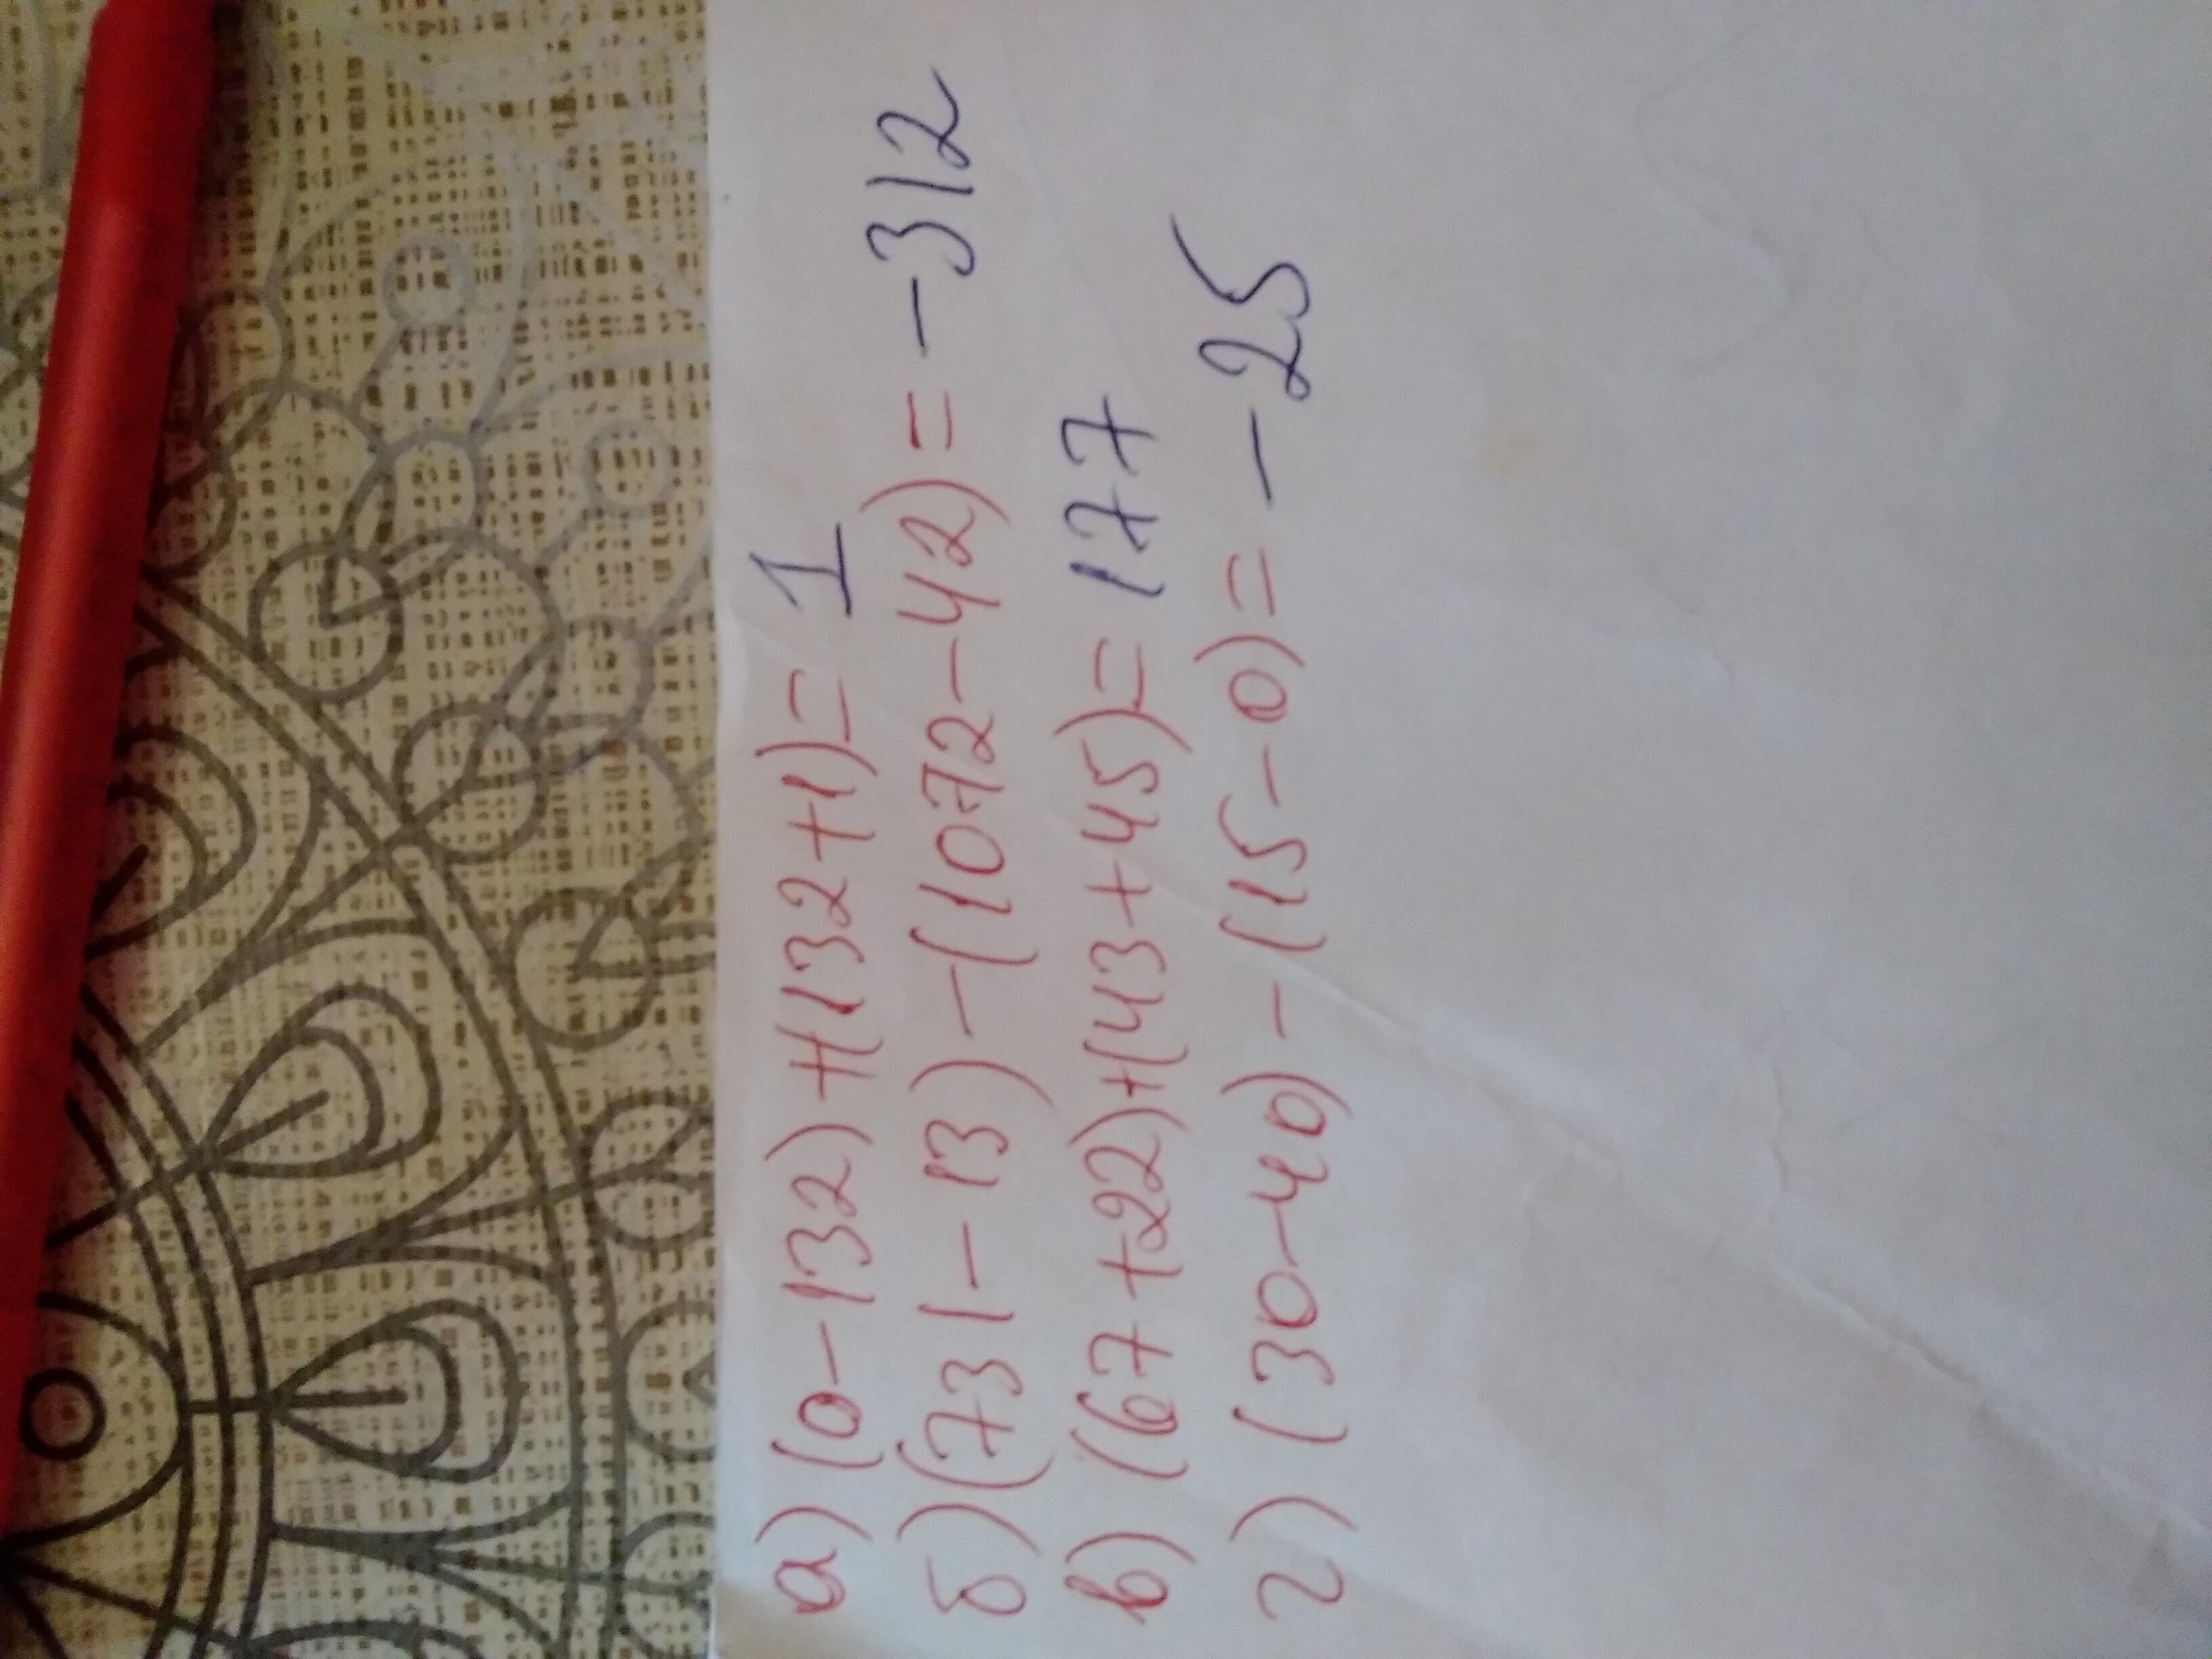 а) (0-132)+(132+1)=1
б) (731-13)-(1072-42)=-312
в) (67+22)+(43+45)=177
г) (30-40)-(15-0)=-25